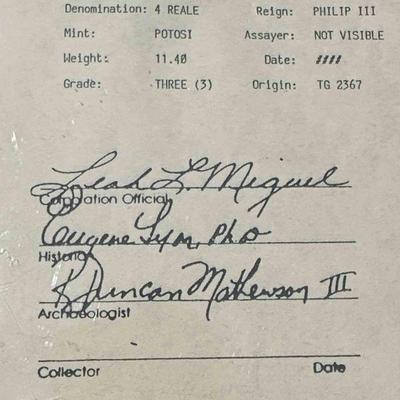 Denomination: 4 REALE Reign: PHILIP III
Mint: POTOSI Assayer: NOT VISIBLE
Weight: 11.40 Date: ////
Grade: THREE (3) Origin: TG 2367
Leah L. Miguel
Compilation Official
Eugene Lyon, Ph.D
Historian
R. Duncan Mathewson III
Archaeologist
Collector Date